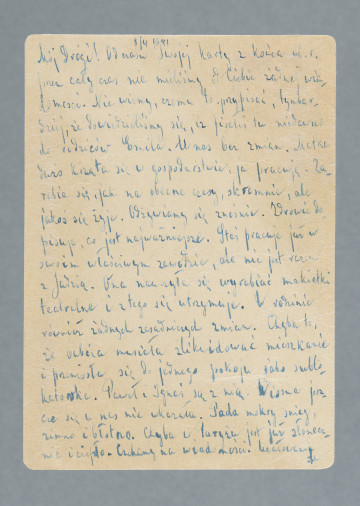 8/4 1941
Mój Drogi! Od czasu Twojej karty z końca ub. r.
przez cały czas nie mieliśmy od Ciebie żadnej wia-
domości. Nie wiemy, czemu to przypisać, tymbar-
dziej, że dowiedzieliśmy się, iż pisałeś tu niedawno
do rodziców Emila. U nas bez zmian.
krząta się w gospodarstwie, ja pracuję. Za-
rabia się, jak na obecne czasy, skromnie, ale
jakoś się żyje. Odżywiamy się znośnie. Zdrowie do-
pisuje, co jest najważniejsze. Staś pracuje już w
swoim właściwym zawodzie, ale nie jest razem
z Jadzią. Ona nauczyła się wyrabiać makietki
teatralne i z tego się utrzymuje. W rodzinie
również żadnych zasadniczych zmian. Chyba to,
że babcia musiała zlikwidować mieszkanie
i przeniosła się do jednego pokoju jako sublo-
katorka. Paweł i Ignaś są z nią. Wiosna jesz-
cze się u nas nie ukazała. Pada mokry śnieg,
zimno i błotno. Chyba w Paryżu jest już słonecz-
nie i ciepło. Czekamy na wiadomości. Całujemy